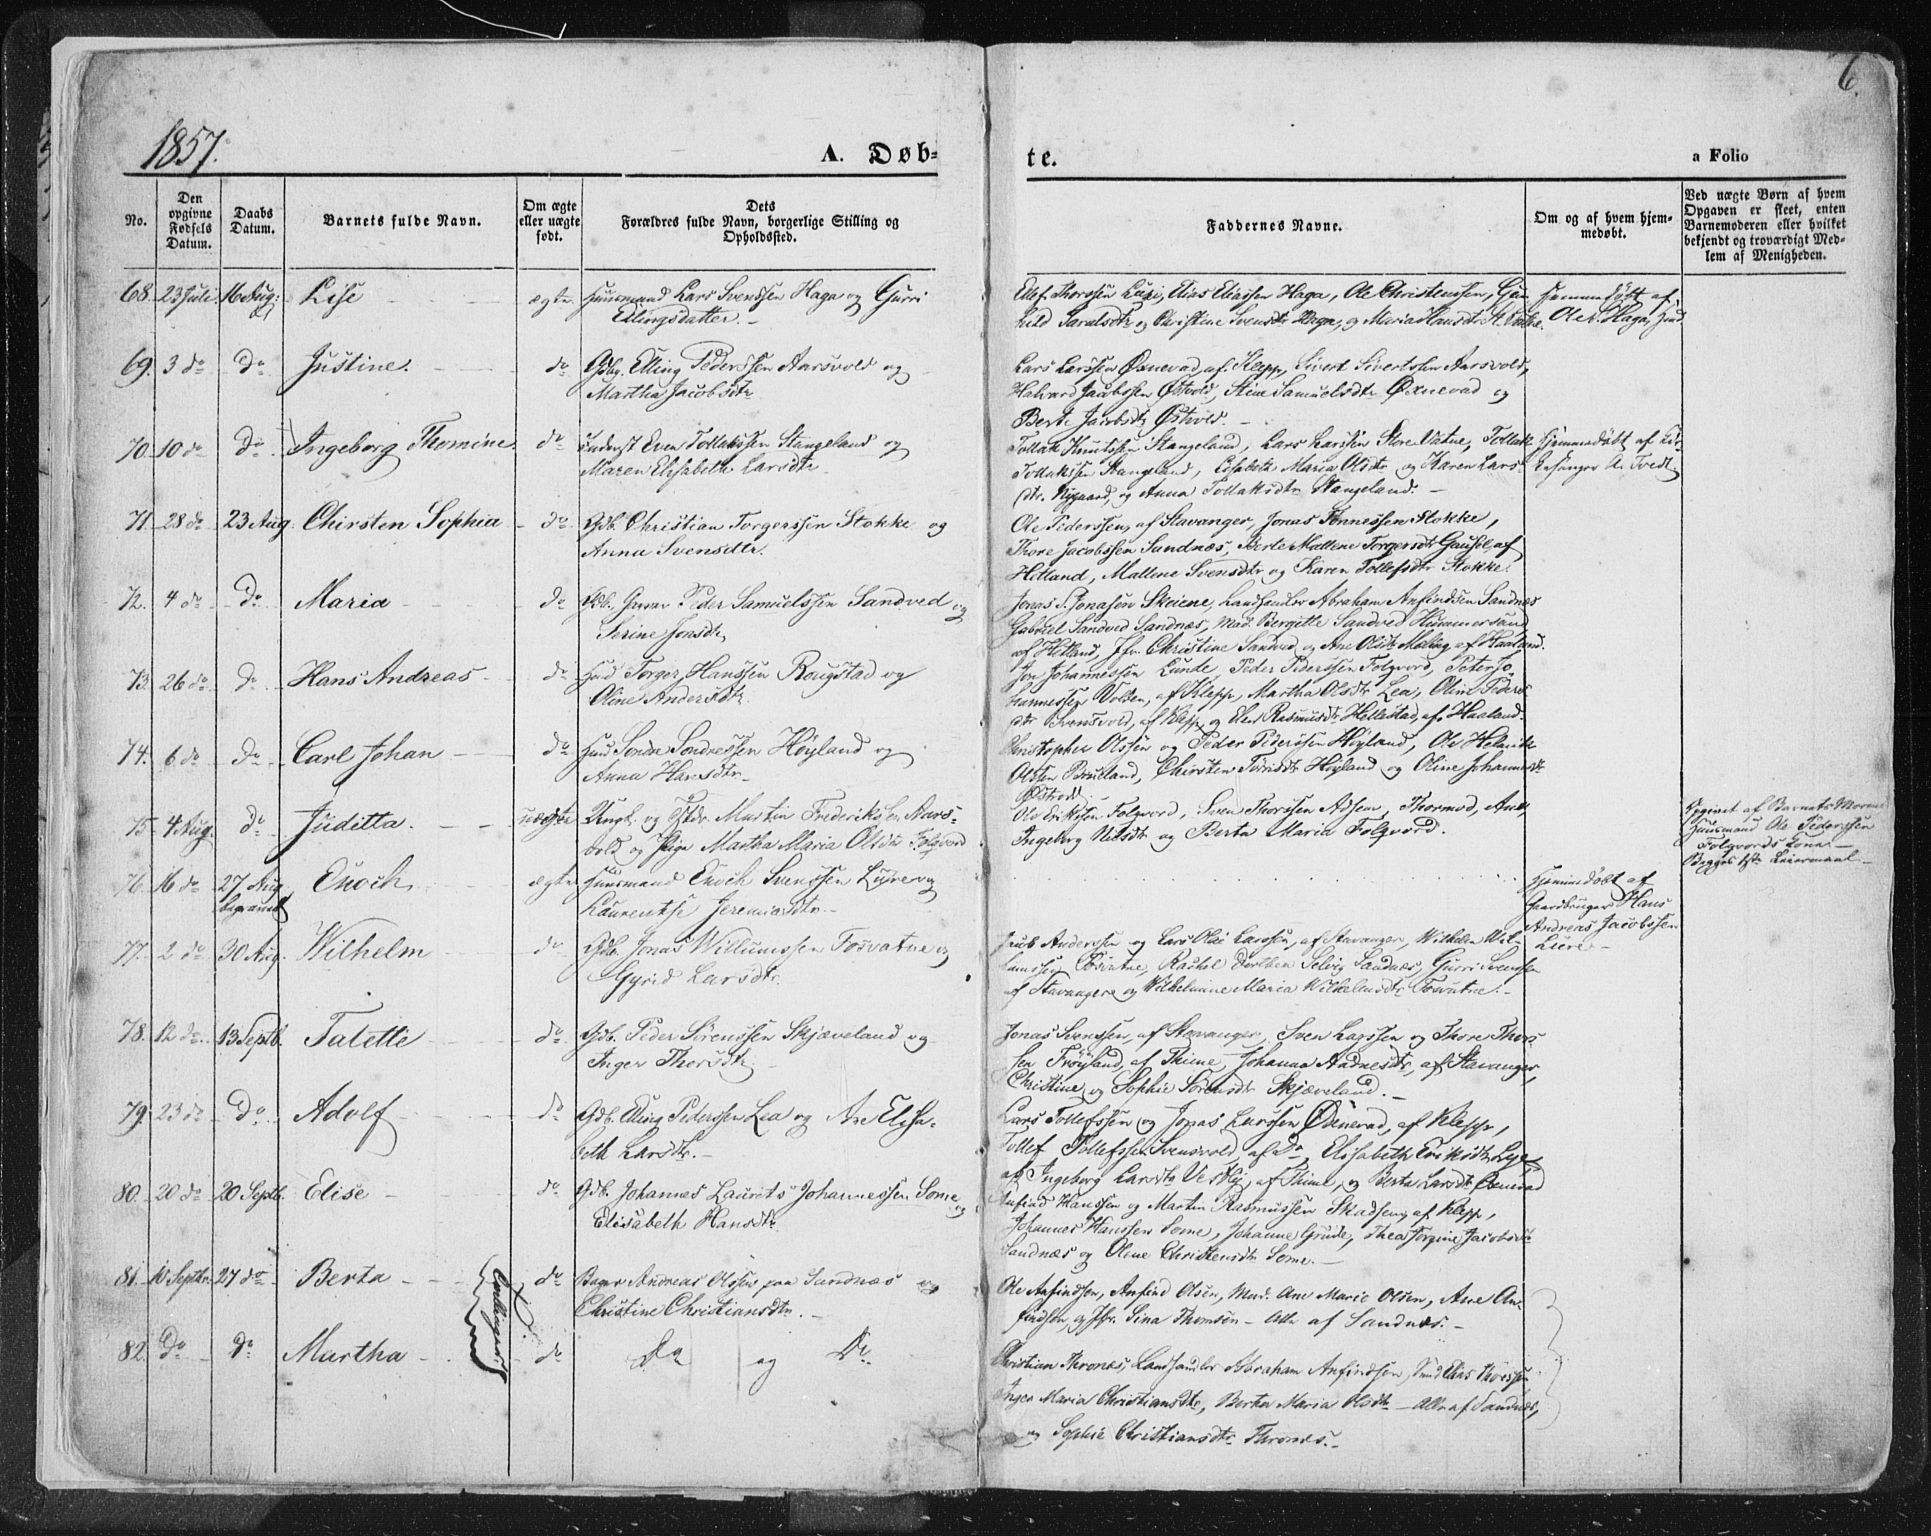 1857.
A. Døb-
te.
a Folio
6.
No.
Den opgivne Fødsels Datum.
Daabs Datum.
Barnets fulde Navn.
Om ægte eller uægte født.
Dets Forældres fulde Navn, borgerlige Stilling og Opholdssted.
Faddernes Navne.
Om og af hvem hjem-medøbt.
Ved uægte Børn af hvem Opgaven er skeet, enten Barnemoderen eller hvilket bekjendt og troværdigt Med-lem af Menigheden.
68. 23 Juli 16 Aug: Lise ægte Huusmand Lars Svenssen Haga og Gurri
Ellingsdatter.
Ellef Thorssen Lura, Elias Eliassen Haga, Ole Christenssen, Gun
hild Saralsdtr og Christine Svensdtr Haga, og Maria Hansdtr St. Vatne.
Hjemmedøbt af
Ole L. Haga, Huusd
69. 3 do Do Justine. do Gdbg. Elling Pederssen Aarsvold og
Martha Jacobsdtr
Lars Larssen Øxnevad, af Klepp, Sivert Sivertssen Aarsvold,
Halvard Jacobssen Østvold, Stine Samuelsdtr Øxnevad og
Berte Jacobsdtr Østvold.
70. 10 do Do Ingeborg Thomine do Inderst Even Tollakssen Stangeland og
Maren Elisabeth Larsdtr
Tollak Knutssen Stangeland, Lars Larssen Store Vatne, Tollak
Tollakssen Stangeland, Elisabeth Maria Olsdtr og Karen Lars-
dtr. Nygaard, og Anna Tollaksdtr Stangeland.
Hjemmedøbt af Kir-
kesanger A. Tvedt
71. 28 do 23 Aug. Chirsten Sophia do Gdb. Christian Torgerssen Stokke og
Anna Svensdtr.
Ole Pederssen, af Stavanger, Jonas Tønnessen Stokke,
Thore Jacobssen Sandnæs, Berte Mallene Torgersdtr Gausel, af
Hetland, Mallene Svensdtr og Karen Tollefsdtr Stokke.
72. 4 do Do Maria do Gdb. Garver Peder Samuelssen Sandved og
Serine Jonsdtr
Jonas S. Jonassen Skeiene, Landhandler Abraham Anfindsen Sandnæs
Gabriel Sandved Sandnæs, Mad. Bergitte Sandved Hummersand
af Hetland, Jfr. Christine Sandved og Ane Olsdtr Maling af Haaland.
73. 26 do Do Hans Andreas do Huusd Torger Hanssen Rougstad og
Oline Andersdtr
Jon Johannessen Lunde, Peder Pederssen Folgvord, Peter Jo
hannessen Volden, af Klepp, Martha Olsdtr Lea, Oline Peders
dtr Svensvold, af Klepp, og Elen Rasmusdtr Hellestad, af Haaland.
74. 6 do Do Carl Johan do Huusd Sondre Sondressen Høyland og
Anna Hansdtr
Christopher Olssen og Peder Pederssen Høyland, Ole Helmik
Olssen Brueland, Chirsten Tørrisdtr Høyland og Oline Johannesdtr
Østraadt.
75. 4 Aug. Do Juditta. uægte Ungk. og Østdr. Martin Frederiksen Aars-
vold og Pige Martha Maria Olsdtr Folgvord
Ole Erikssen Folgvord, Sven Thorssen Adsem, Thormod, Ane,
Ingeborg Nielsdtr og Berta Maria Folgvord.
Opgivet af Barnets Morens
Huusmand Ole Pederssen
Folgvords Kone.
Begges 1ste Leiermaal.
76. 16 do 27 Aug. begravet Enoch ægte Huusmand Enoch Svenssen Lure og
Laurentse Jeremiasdtr.
Hjemmedøbt af
Gaardbruger Hans
Andreas Jacobssen
Lure.
77. 2 do 30 Aug. Wilhelm do Gdb. Jonas Willumssen Fosvatne og
Gyrid Larsdtr.
Jacob Anderssen og Lars Olai Larssen, af Stavanger, Wilhelm Wil-
lumssen Fosvatne, Rachel Dorthea Selvig Sandnæs, Gurri Svenssen
af Stavanger og Wilhelmine Maria Wilhelmsdtr Fosvatne.
78. 12 do 13 Septb. Talette do Gdb. Peder Sørenssen Skjæveland og
Inger Thorsdtr
Jonas Svenssen, af Stavanger, Sven Larssen og Thore Thors-
sen Frøyland, af Thime, Johanna Andnesdtr, af Stavanger,
Christine og Sophie Sørensdtr Skjæveland.
79. 23 do Do Adolf do Gdb. Elling Pederssen Lea og Ane Elisa-
beth Larsdtr.
Lars Tollefssen og Jonas Larssen Øxnevad, af Klepp,
Tollef Tollefssen Svensvold, af Do, Elisabeth Eriksdtr Lye,
af Ingeborg Larsdtr Vestly, af Thime, og Berta Larsdtr Øxnevad
80. 20 do 20 Septb. Elise do Gdb. Johannes Laurits Johannessen Some og
Elisabeth Hansdtr
Anfind Hanssen og Martin Rasmussen Skadsem, af Klepp,
Johannes Hanssen Some, Johanne Grude, Thea Torgine Jacobsdtr
Sandnæs og Olene Christensdtr Some.
81. 10 Septbr. 27 do Berta do Bager Andreas Olssen paa Sandnæs og
Christine Christiansdtr.
Ole Anfindsen, Anfind Olsen, Mad. Ane Marie Olsen, Ane An-
findsen, og Jfr. Sina Thomsen - Alle af Sandnæs.
Tvillinger.
82. Do Do Martha do Do og Do
Christian Thronæs, Landhandler Abraham Anfindsen, Huusd Elias Thorssen
Inger Maria Christiansdtr, Berta Maria Olsdtr - Alle af Sandnæs,
og Sophie Christiansdtr Thronæs.